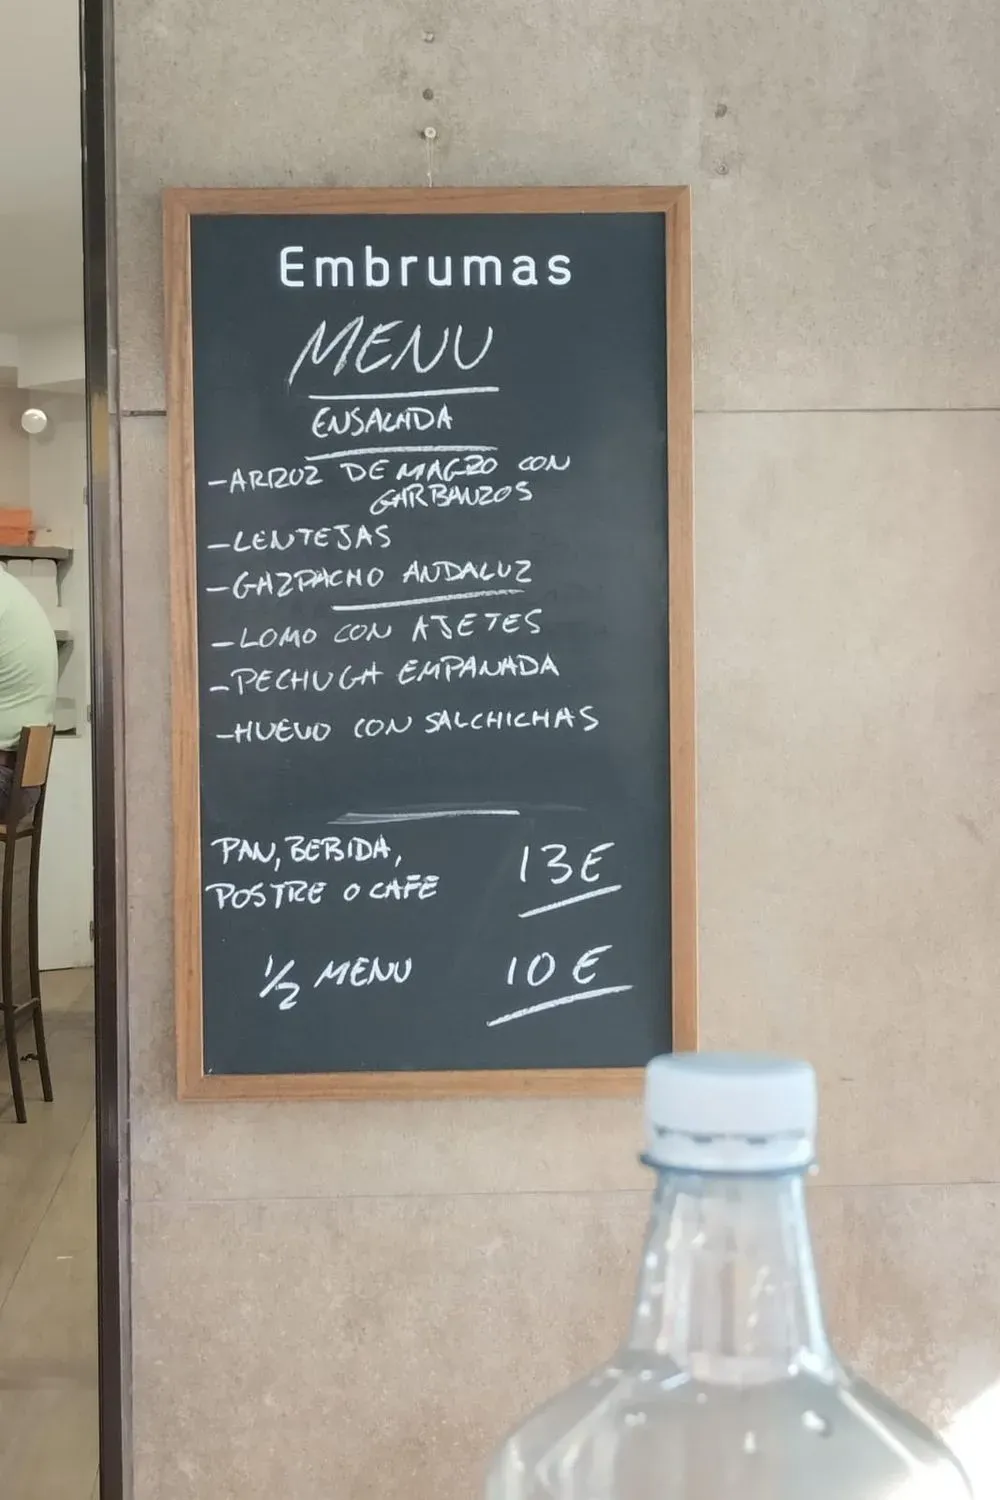 Embrumas
MENU
ENSALADA
-ARROZ DE MAGRO CON
GARBANZOS
-LENTEJAS
-GAZPACHO ANDALUZ
-LOMO CON AJETES
-PECHUGA EMPANADA
-HUEVO CON SALCHICHAS
PAN, BEBIDA,
POSTRE O CAFE 13€
1/2 MENU 10 €